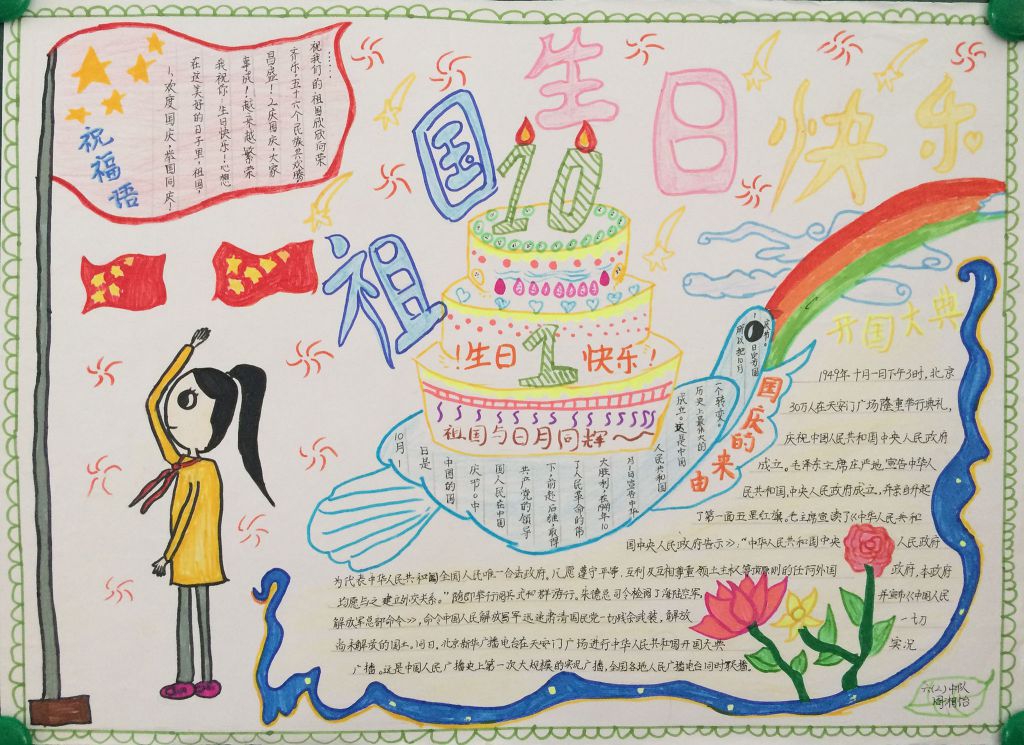 祖国生日快乐
祝福语
1、欢度国庆,举国同庆!
在这美好的日子里,祖国,
我祝你:生日快乐!心想
事成!越来越繁荣
昌盛!2、庆国庆,大家
齐乐,五十六个民族共欢腾,
祝我们的祖国欣欣向荣
……
10
!生日1快乐!
祖国与日月同辉~~
国庆的来由
10月1
日是
中国的国
庆节。中
国人民在中国
共产党的领导
下,前赴后继,取得
了人民革命的伟
大胜利,在1949年10
月1日宣告中华
人民共和国
成立。这是中国
历史上最伟大的
一个转变。
所以把10月
1日定为国
庆节。
开国大典
1949年十月一日下午3时,北京
30万人在天安门广场隆重举行典礼,
庆祝中国人民共和国中央人民政府
成立。毛泽东主席庄严地宣告中华人
民共和国,中央人民政府成立,并亲自升起
了第一面五星红旗。毛主席宣读了《中华人民共和
国中央人民政府告示》:“中华人民共和国中央人民政府
为代表中华人民共和国全国人民唯一合法政府,凡愿遵守平等,互利及互相尊重领土主权等项原则的任何外国政府,本政府
均愿与之建立外交关系。”随即举行阅兵式和群游行,朱德总司令检阅了海陆空军,并宣布《中国人民
解放军总部命令》,命令中国人民解放军迅速肃清国民党一切残余武装,解放一切
尚未解放的国土。同日,北京新华广播电台在天安门广场进行中华人民共和国开国大典实况
广播。这是中国人民广播史上第一次大规模的实况广播,全国各地人民广播电台同时联播。
六(2)中队
周湘怡